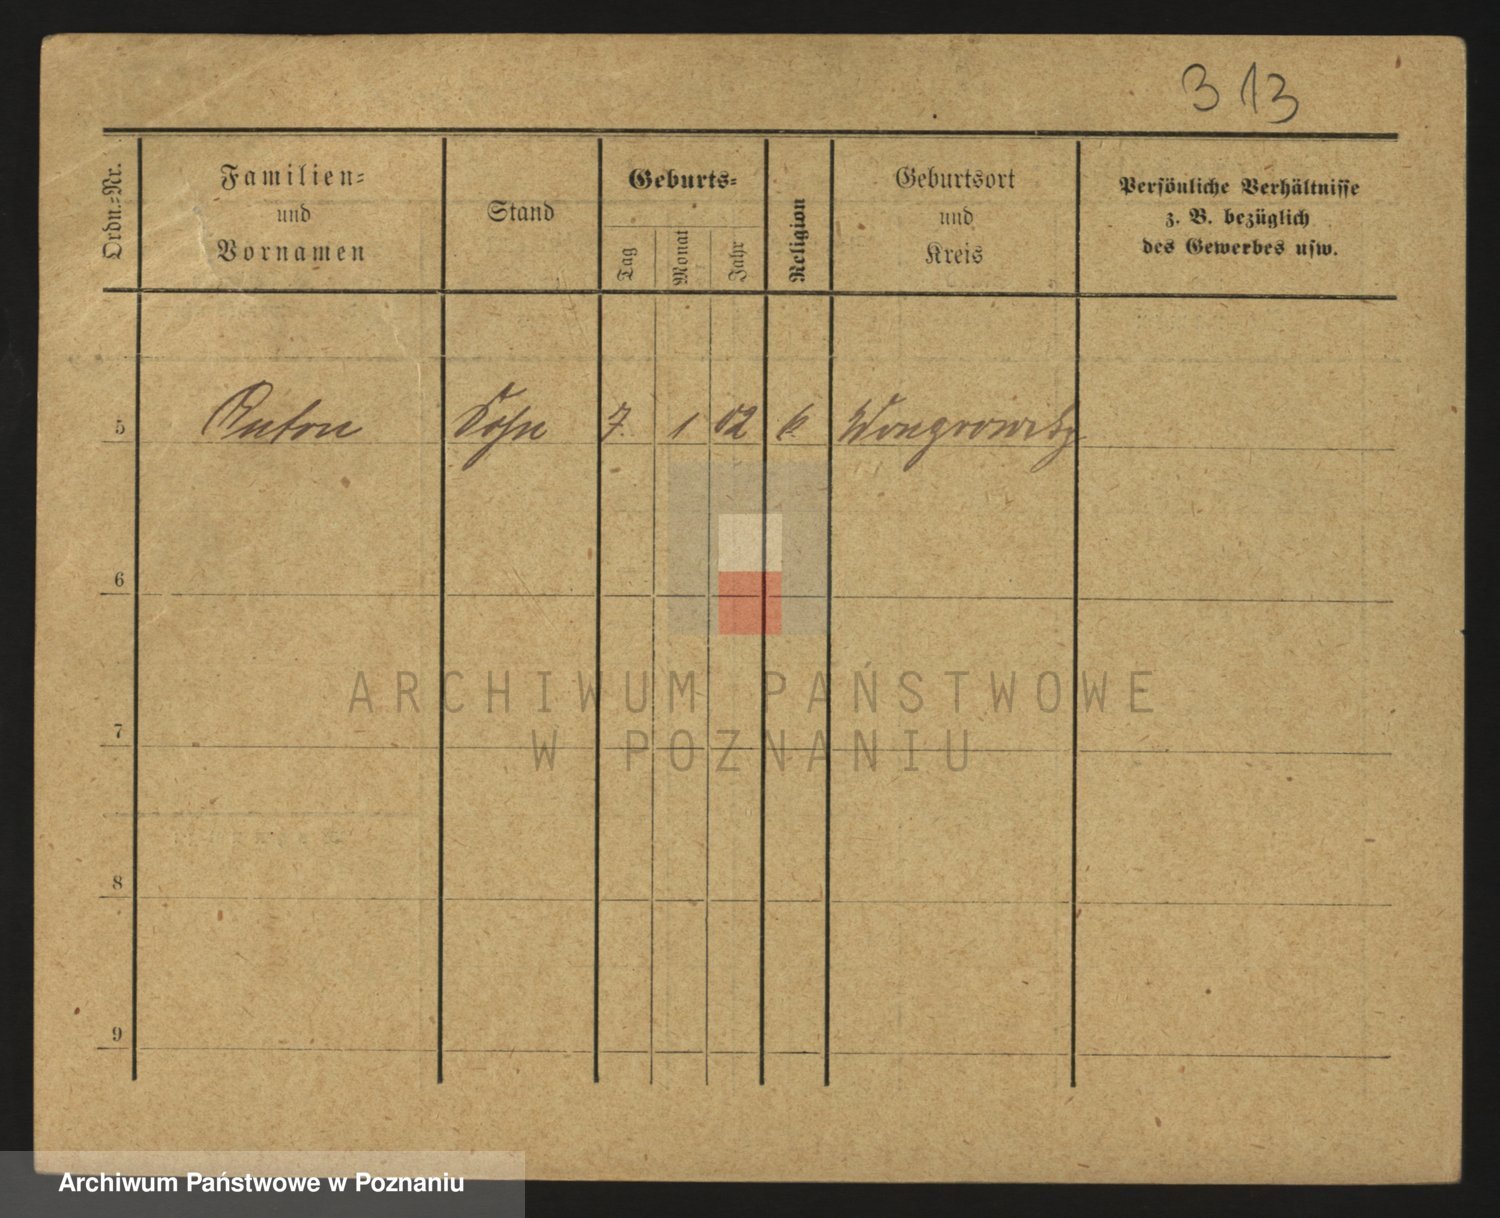 313
Ordn.-Nr.
Familien-
und
Vornamen
Stand
Geburts-
Tag
Monat
Jahr
Religion
Geburtsort
und
Kreis
Persönliche Verhältnisse
z. B. bezüglich
des Gewerbes usw.
5 Anton Sohn 7. 1 02 k Wongrowitz
6
7
8
9
ARCHIWUM PAŃSTWOWE
W POZNANIU
Archiwum Państwowe w Poznaniu